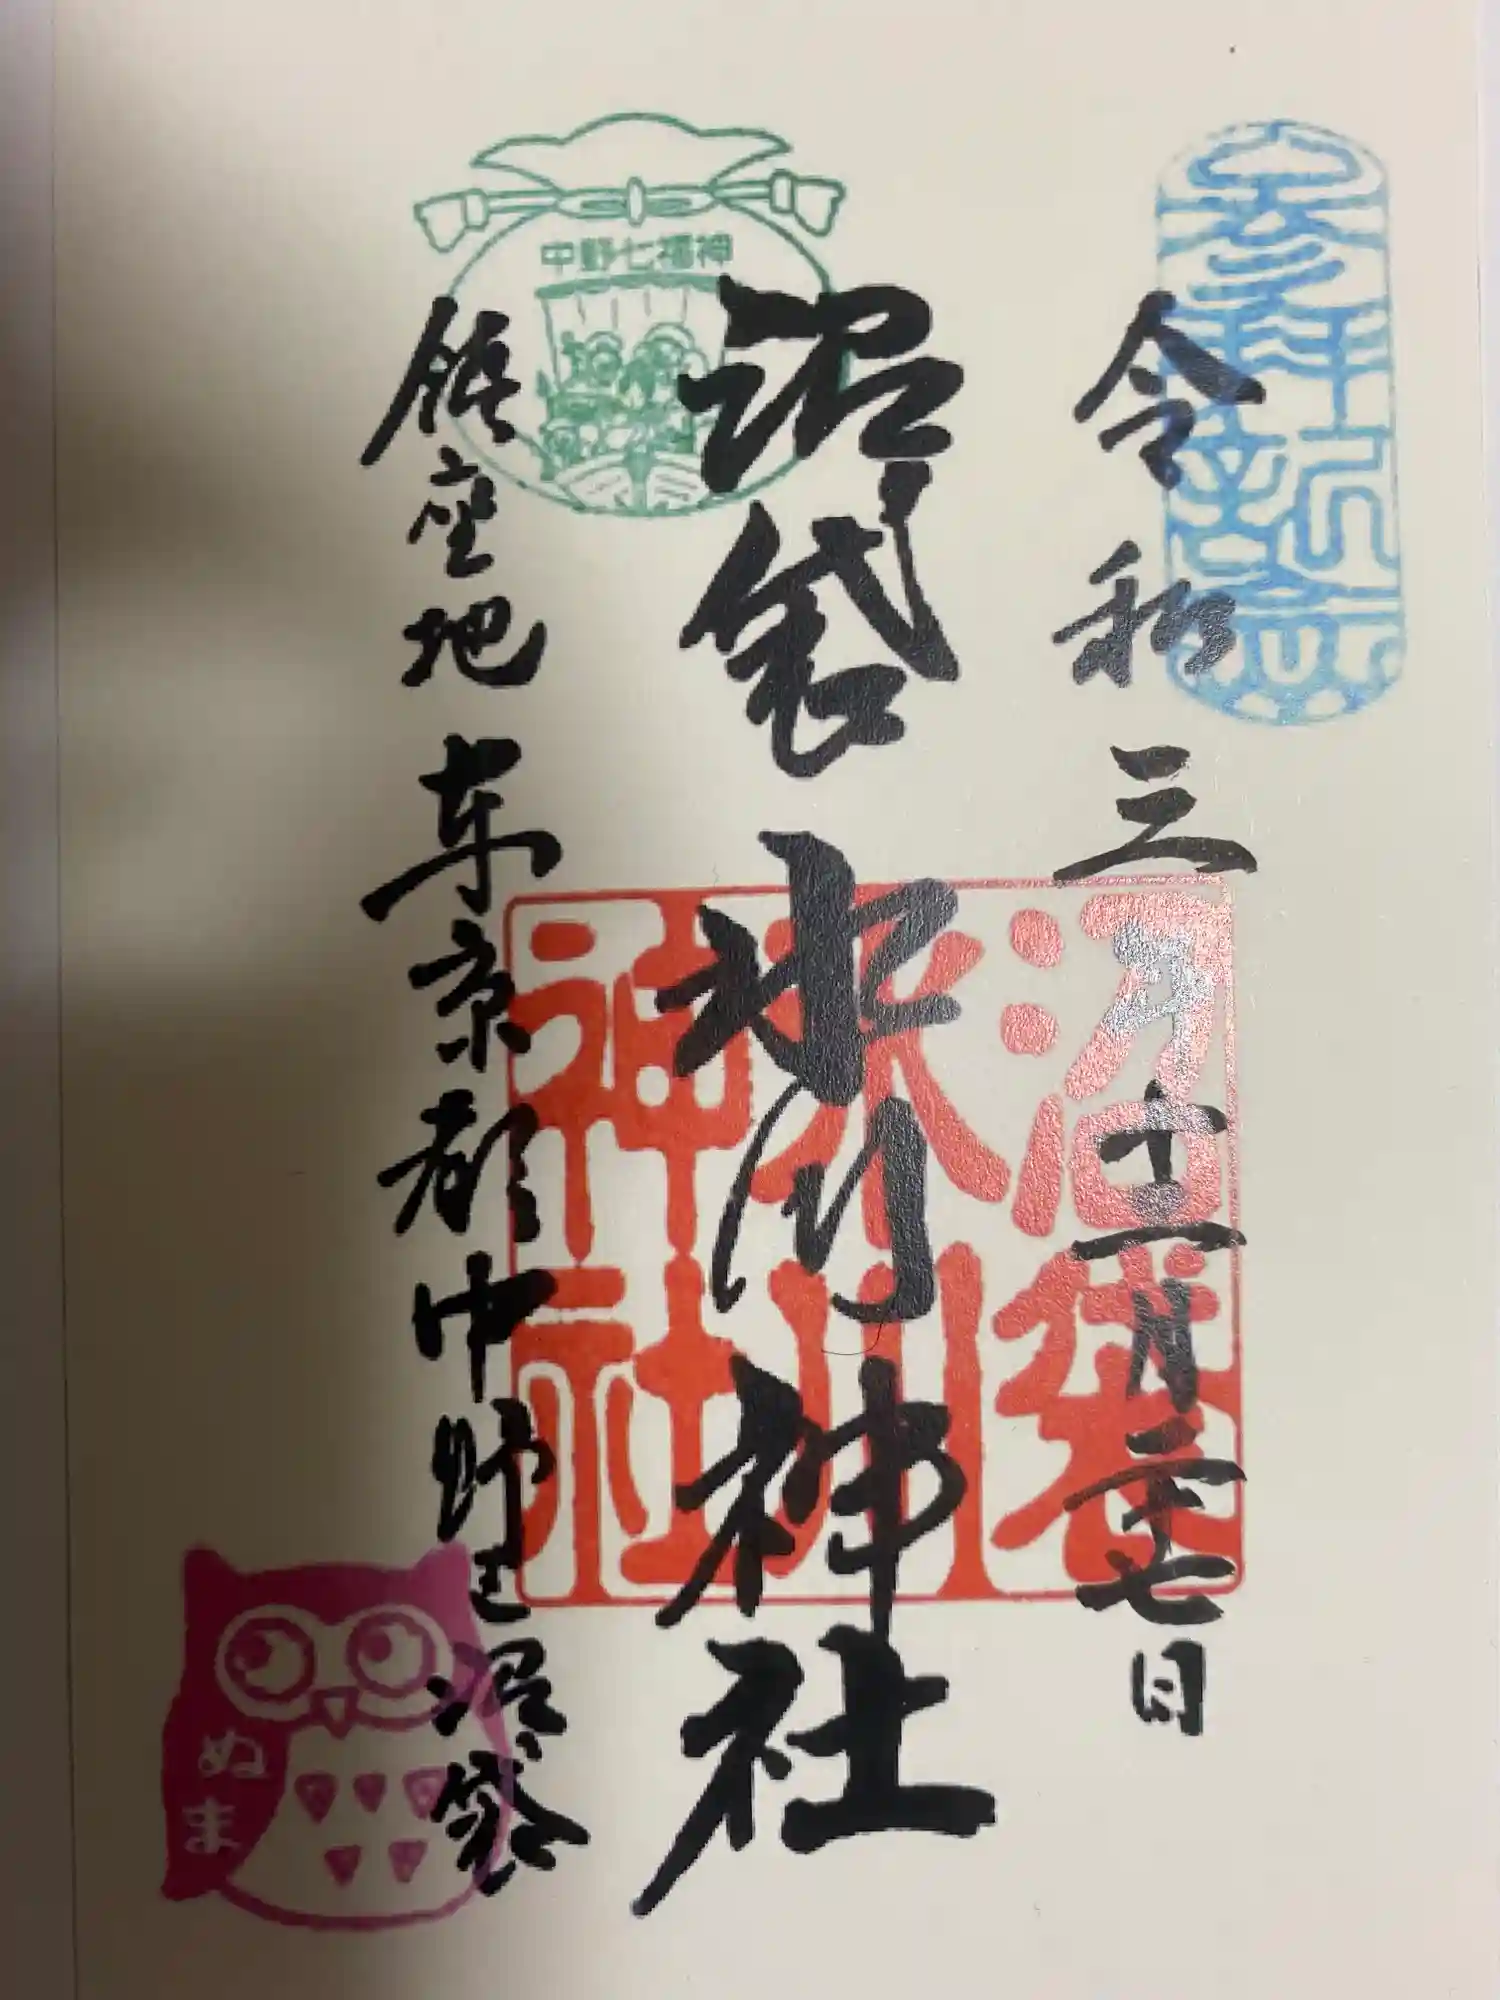 参拝祈念
令和三年十二月二十七日
沼袋氷川神社
沼袋
氷川
神社
中野七福神
鎮座地 東京都中野区沼袋
ぬま